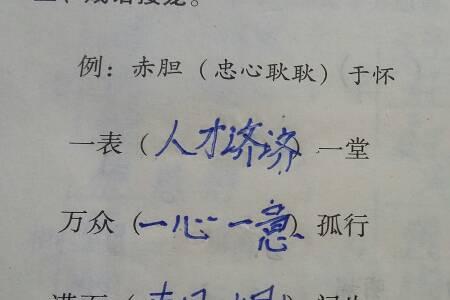 例：赤胆（忠心耿耿）于怀
一表（人才济济）一堂
万众（一心一意）孤行
满面（